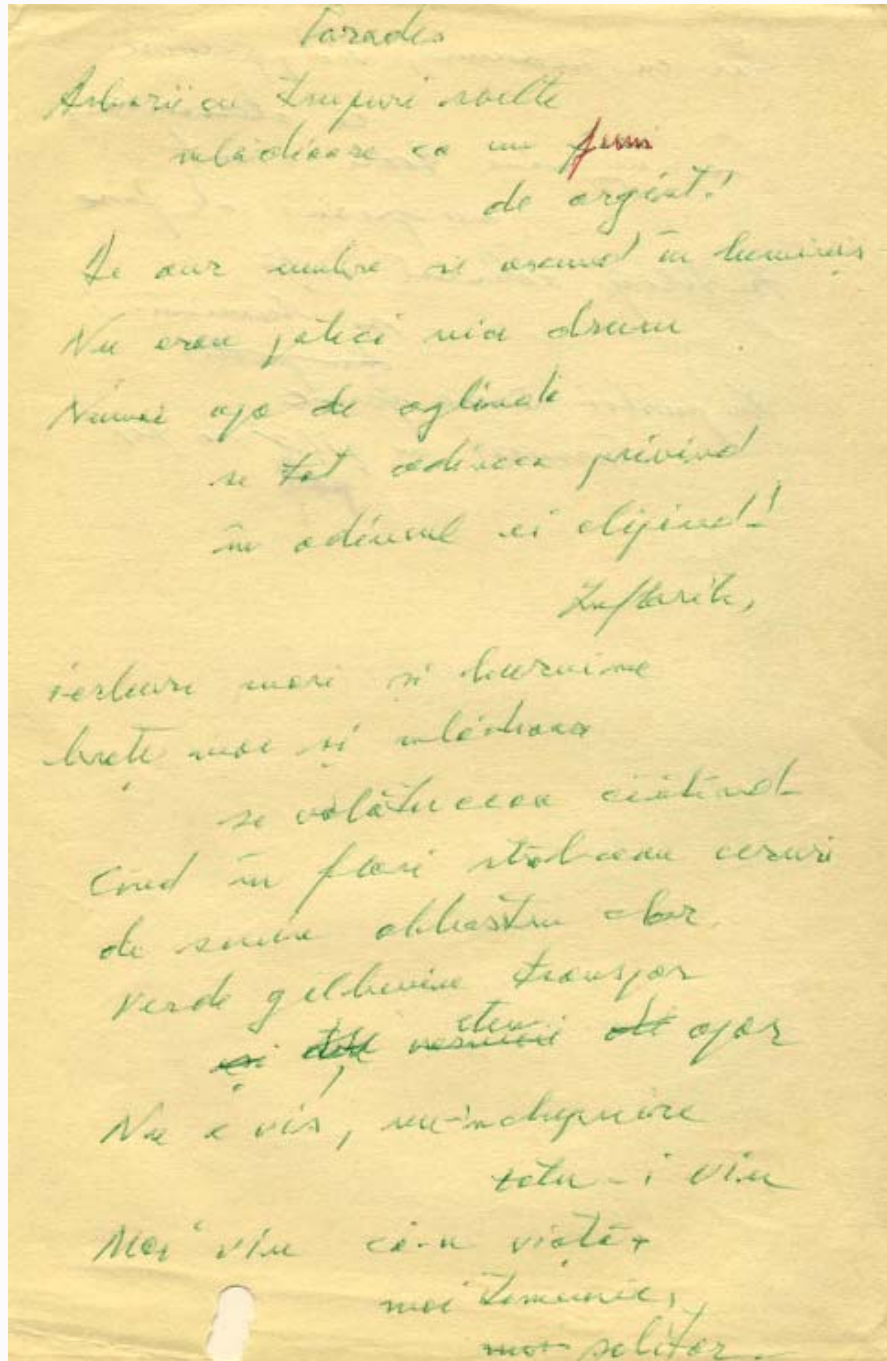 Parades
Arborii cu trupuri svelte
mlădioase ca un fum
de argint!
De aur umbre se ascund în luminiș
Nu erau poteci nici drum
Numai apa de oglindă
se tot adîncea privind
în adîncul ei clipind!
Înflorite,
ierburi mari și
brațe moi și mlădioase
se vălătuceau
Cînd în flori străluceau ceruri
de senin albastru clar
Verde gălbenine transpar
și
Nu e vis, nu-nchipuire
totu-i viu
Mai viu ca-n viață
mai temeinic,
mai solitar.